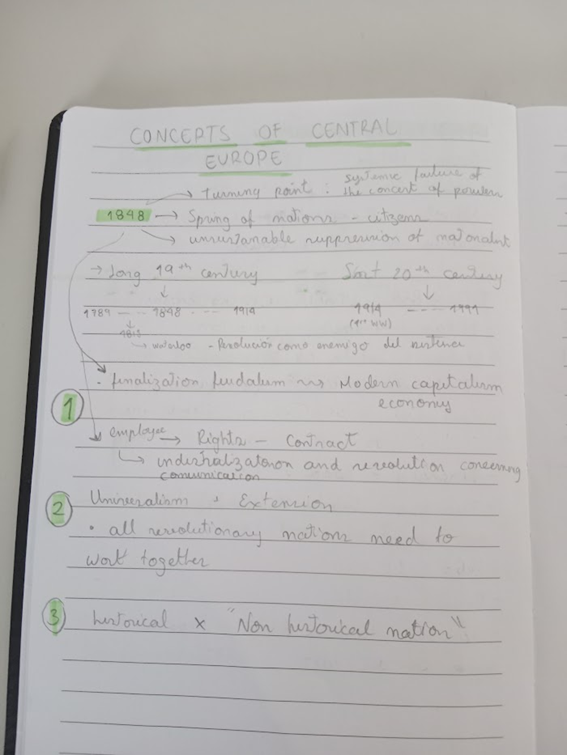 CONCEPTS OF CENTRAL
EUROPE
→ Turning point : systemic failure of
the concert of powers
1848 → Spring of nations - citizens
→ unsustainable suppression of nationalist
→ Long 19th century Short 20th century
↓ ↓
1789 --- 1848 --- 1914 1914 ---- 1991
(1st WW)
↓
1815
↳ waterloo - Revolución como enemigo del sistema
• finalization feudalism ~> Modern capitalism
economy
1
employee → Rights - Contract
↳ industrialization and revolution concerning
comunication
2 Universalism + Extension
• all revolutionary nations need to
work together
3 historical x "Non historical nation"